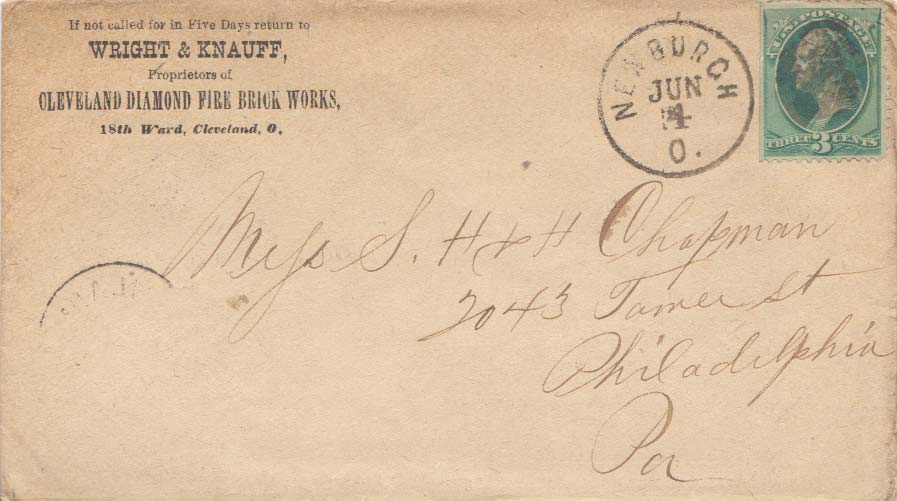 If not called for in Five Days return to
WRIGHT & KNAUFF,
Proprietors of
CLEVELAND DIAMOND FIRE BRICK WORKS,
18th Ward, Cleveland, O.
NEWBURGH
JUN
O.
U.S. POSTAGE
THREE 3 CENTS
S. H & H Chapman
2043 Tower St
Philadelphia
Pa